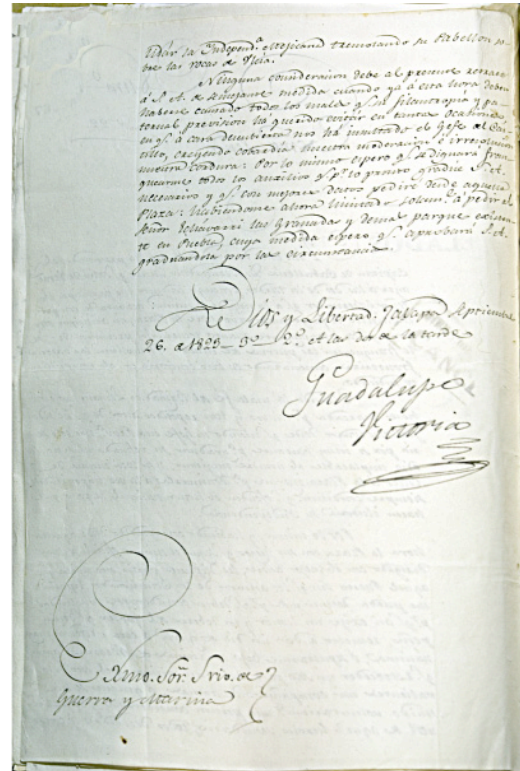 lidár la Independ.ª Mejicana tremolando su Pabellon so-
bre las rocas de Ulúa.
Ninguna consideracion debe al presente retraer
á S. A. de semejante medida cuando ya á esta hora deben
haberse cumado todos los males q.e su filantropia y pa-
ternal prevision há querido evitar en tantas ocasiones
en q.e á cara descubierta nos há insultado el Gefe del Cas-
tillo, creyendo cobardia nuestra moderacion é irresolucion
nuestra cordura: Por lo mismo espero q.e se dignará fran-
quearme todos los auxilios q.e p.r lo pronto gradue S. A.
necesarios y q.e con mejores datos pediré desde aquella
Plaza: habiendome ahora limitado solam.te á pedir al
Señor Echavarri las Granadas y demas parque existen-
te en Puebla, cuya medida espero q.e aprobará S. A.
graduandola por las circunstancias.
Dios y Libertad. Jalapa Septiembre
26. de 1823_ 3.º_ 2.º á las dos de la tarde
Guadalupe
Victoria
Exmo. Sor. Srio. de
Guerra y Marina